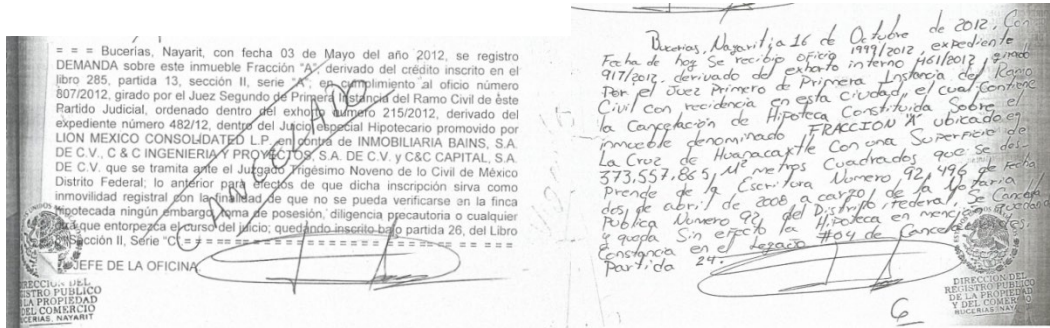 = = = Bucerias, Nayarit, con fecha 03 de Mayo del año 2012, se registro
DEMANDA sobre este inmueble Fracción "A", derivado del crédito inscrito en el
libro 285, partida 13, sección II, serie "A", en cumplimiento al oficio número
807/2012, girado por el Juez Segundo de Primera Instancia del Ramo Civil de èste
Partido Judicial, ordenado dentro del exhorto número 215/2012, derivado del
expediente número 482/12, dentro del Juicio especial Hipotecario promovido por
LION MEXICO CONSOLIDATED L.P. en contra de INMOBILIARIA BAINS, S.A.
DE C.V., C & C INGENIERIA Y PROYECTOS, S.A. DE C.V. y C&C CAPITAL, S.A.
DE C.V. que se tramita ante el Juzgado Trigésimo Noveno de lo Civil de México
Distrito Federal; lo anterior para efectos de que dicha inscripción sirva como
inmovilidad registral con la finalidad de que no se pueda verificarse en la finca
hipotecada ningún embargo, toma de posesión, diligencia precautoria o cualquier
que entorpezca el curso del juicio; quedando inscrito bajo partida 26, del Libro
Sección II, Serie "C" = = = = = = = = = = = = = = = = = = =
JEFE DE LA OFICINA
CANCELADO
DEL
PUBLICO
LA PROPIEDAD
DEL COMERCIO
NAYARIT
Bucerias, Nayarit; a 16 de Octubre de 2012, Con
Fecha de hoy Se recibio oficio 1999/2012, expediente
917/2012, derivado del exhorto interno 461/2012, girado
Por el Juez Primero de Primera Instancia del Ramo
Civil con recidencia en esta ciudad, el cual contiene
la Cancelación de Hipoteca Constituida Sobre el
inmueble denominado FRACCION "A" ubicado en
La Cruz de Huanacaxtle Con una Superficie de
373,557.865, M² metros Cuadrados que se des-
Prende de la Escritura Numero 92,496 de fecha
dos de abril de 2008 a cargo de la Notaria
Publica Numero 92 del Distrito Federal, Se Cancela
y queda Sin efecto la Hipoteca en mencion
Constancia en el Legazo #04 de
Partida 24.
DIRECCION DEL
REGISTRO PUBLICO
DE LA PROPIEDAD
Y DEL COMERCIO
BUCERIAS
6